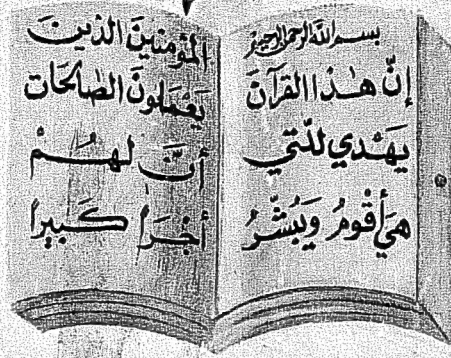 بسم الله الرحمن الرحيم
إنّ هٰذا القرآنَ
يَهْدي للّتي
هيَ أقْومُ وَيُبَشّرُ
المؤمنينَ الذينَ
يَعْمَلونَ الصّالحَات
أنَّ لهُمْ
أجْرَاً كَبيراً